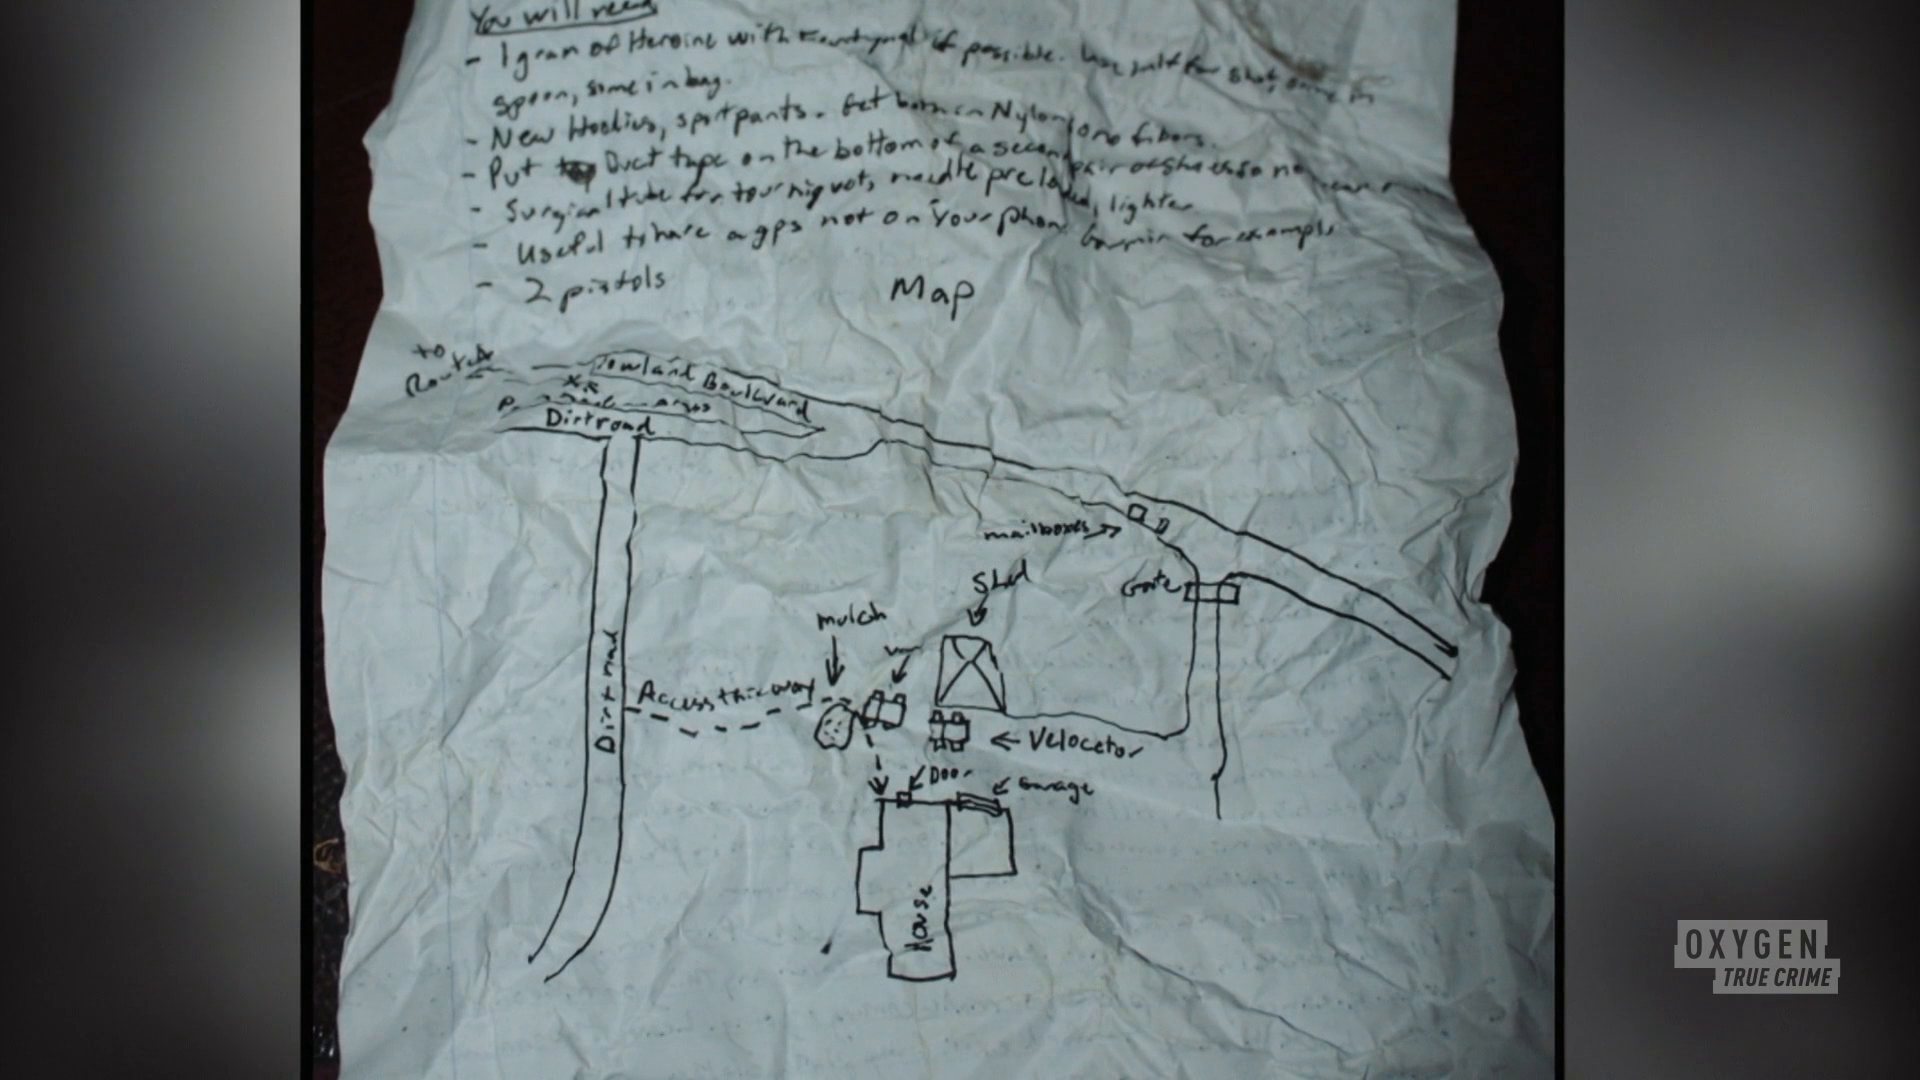 You will need
- 1 gram of Heroine with if possible. Use half for shot, some in
spoon, some in bag.
- New Hoodies, sportpants. Get both in Nylon, no fibers.
- Put Duct tape on the bottom of a second pair of shoes so no
- Surgical tube for tourniquet, needle pre loaded, lighter
- Useful to have a gps not on your phone Garmin for example
- 2 pistols
Map
to
Route
Rowland Boulevard
xx
Dirt road
mailboxes
Shed
Gate
mulch
Access this way
Dirt road
Velocetor
Door
Garage
House
OXYGEN
TRUE CRIME